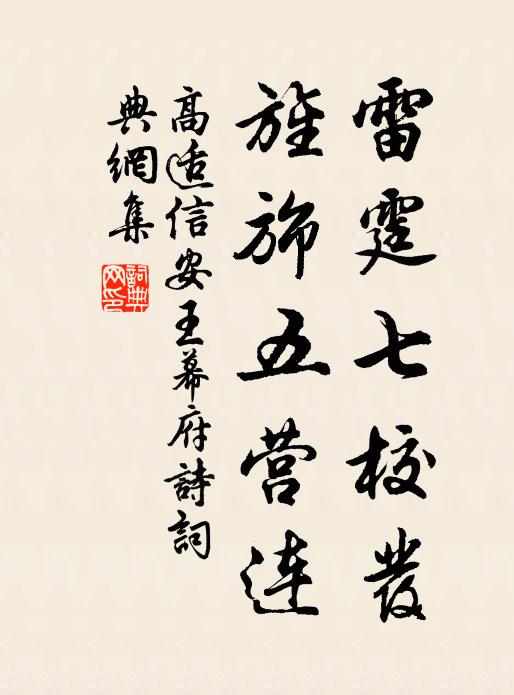 雷霆七校發
旌旆五营連
高适信安王幕府詩詞
典網集
詞典網印